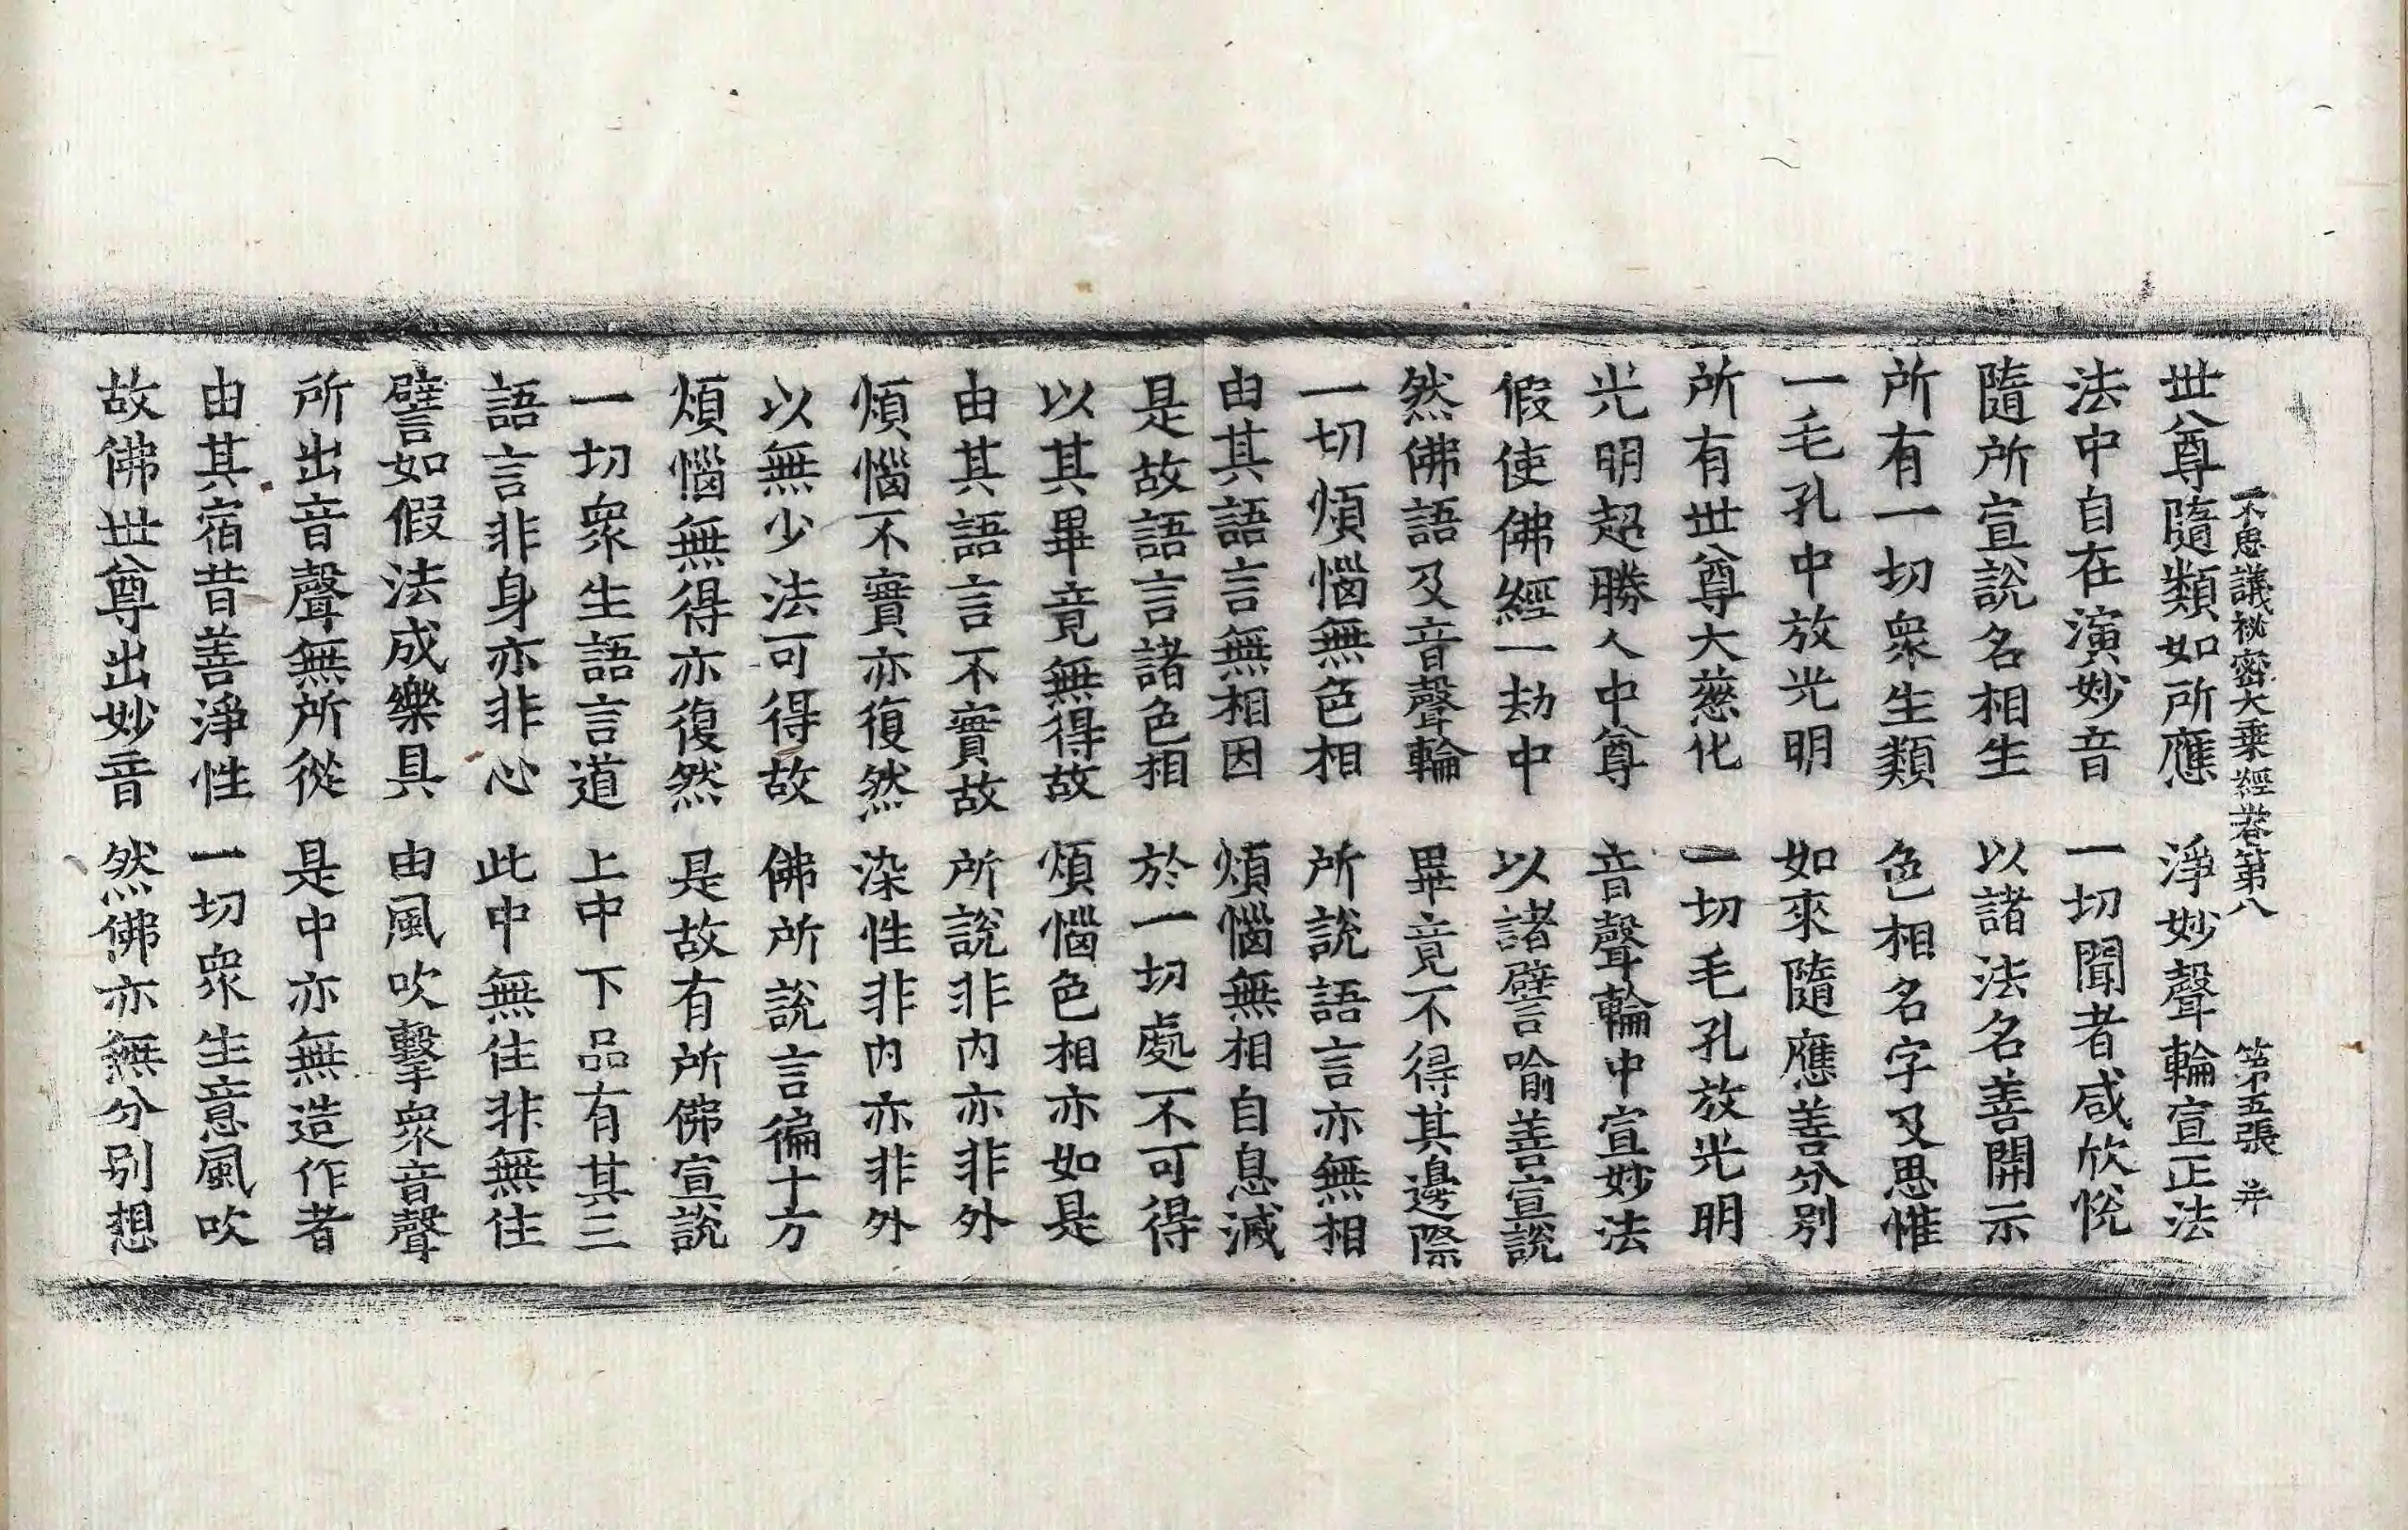 不思議祕密大乘經卷第八　第五張　幷
世尊隨類如所應　淨妙聲輪宣正法
法中自在演妙音　一切聞者咸欣悅
隨所宣說名相生　以諸法名善開示
所有一切衆生類　色相名字及思惟
一毛孔中放光明　如來隨應善分別
所有世尊大慈化　一切毛孔放光明
光明超勝人中尊　音聲輪中宣妙法
假使佛經一劫中　以諸譬喻善宣說
然佛語及音聲輪　畢竟不得其邊際
一切煩惱無色相　所說語言亦無相
由其語言無相因　煩惱無相自息滅
是故語言諸色相　於一切處不可得
以其畢竟無得故　煩惱色相亦如是
由其語言不實故　所說非內亦非外
煩惱不實亦復然　染性非內亦非外
以無少法可得故　佛所說言徧十方
煩惱無得亦復然　是故有所佛宣說
一切衆生語言道　上中下品有其三
語言非身亦非心　此中無住非無住
譬如假法成樂具　由風吹擊衆音聲
所出音聲無所從　是中亦無造作者
由其宿昔善淨性　一切衆生意風吹
故佛世尊出妙音　然佛亦無分別想